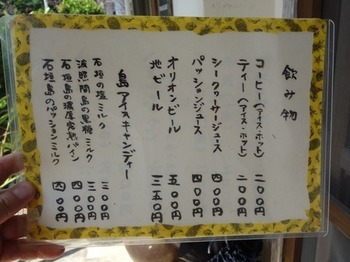 飲み物
コーヒー(アイス・ホット) 二〇〇円
ティー(アイス・ホット) 二〇〇円
シークヮーサージュース 四〇〇円
パッションジュース 四〇〇円
オリオンビール 五〇〇円
地ビール 三五〇円
島アイスキャンディー
石垣の塩ミルク 三〇〇円
波照間島の黒糖ミルク 三〇〇円
石垣島の濃厚完熟パイン 四〇〇円
石垣島のパッションミルク 四〇〇円